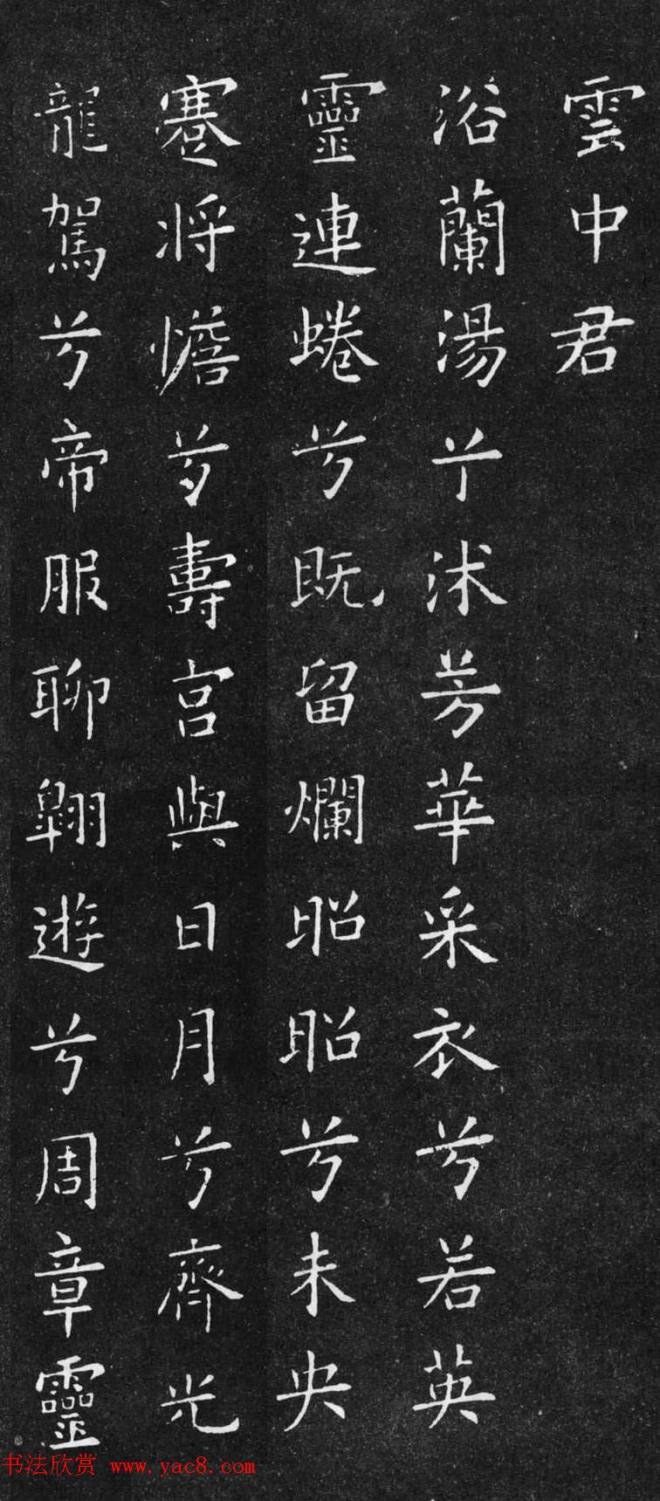 雲中君
浴蘭湯兮沐芳華采衣兮若英
靈連蜷兮既留爛昭昭兮未央
蹇將憺兮壽宮與日月兮齊光
龍駕兮帝服聊翱遊兮周章靈
书法欣赏 www.yac8.com